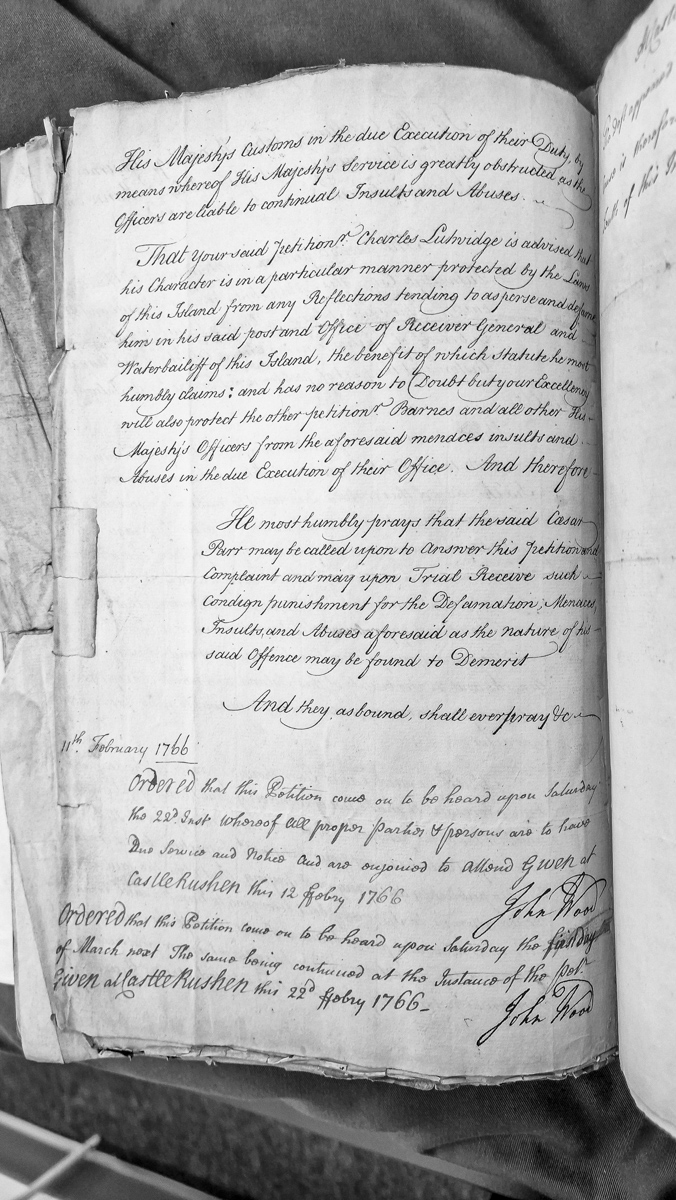 His Majesty's Customs in the due Execution of their Duty, by
means whereof His Majesty's Service is greatly obstructed, as the
Officers are liable to continual Insults and Abuses.
That your said Petitionr. Charles Lutwidge is advised that
his Character is in a particular manner protected by the Laws
of this Island from any Reflections tending to asperse and defame
him in his said post and Office of Receiver General and
Waterbailiff of this Island, the benefit of which statute he most
humbly claims; and has no reason to Doubt but your Excellency
will also protect the other petitionr. Barnes and all other His
Majesty's Officers from the aforesaid menaces insults and
Abuses in the due Execution of their Office. And therefore
He most humbly prays that the said Cæsar
Parr may be called upon to answer this Petition and
Complaint and may upon Trial Receive such
Condign punishment for the Defamation, Menaces,
Insults, and Abuses aforesaid as the nature of his
said Offence may be found to Demerit
And they, as bound, shall ever pray &c
11th. February 1766
Ordered that this Petition come on to be heard upon Saturday
the 22d Inst whereof all proper Parties & persons are to have
Due Service and Notice and are enjoined to attend Given at
Castle Rushen this 12 ffebry 1766
John Wood
Ordered that this Petition come on to be heard upon Saturday the first day
of March next The same being continued at the Instance of the Petr.
Given at Castle Rushen this 22d ffebry 1766
John Wood
of this